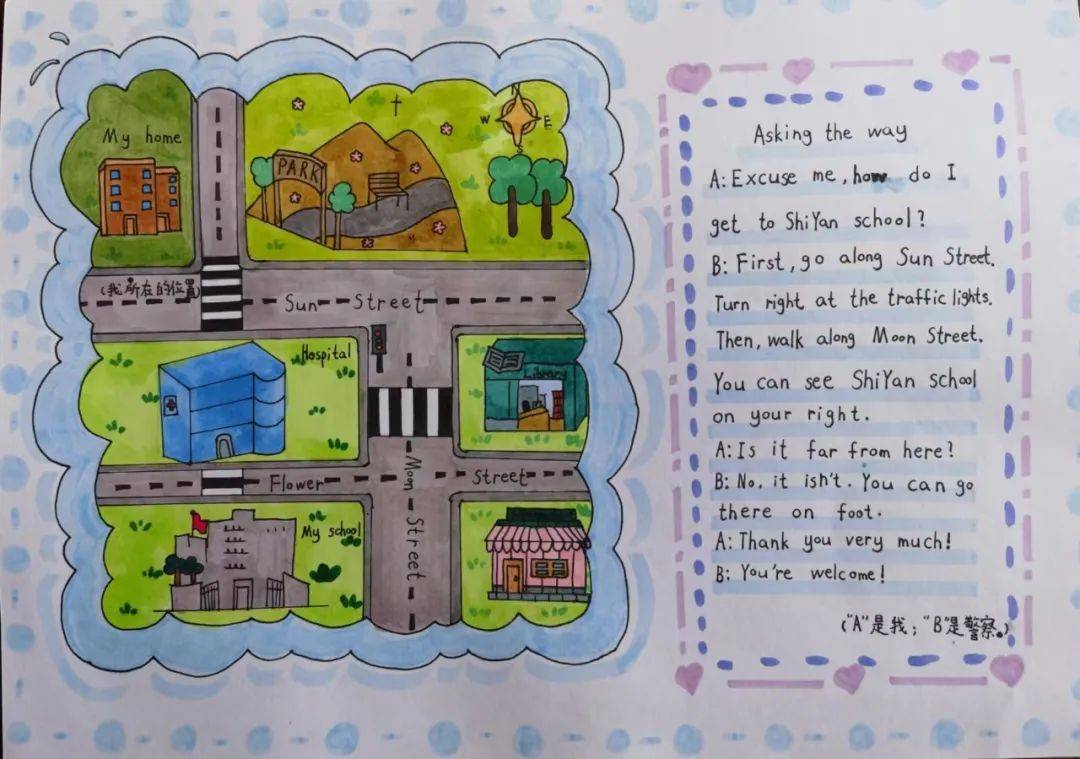 My home
PARK
W
E
S
(我所在的位置)
Sun Street
Hospital
Library
Flower Street
Moon Street
My school
Asking the way
A: Excuse me, how do I
get to ShiYan school?
B: First, go along Sun Street.
Turn right at the traffic lights.
Then, walk along Moon Street.
You can see ShiYan school
on your right.
A: Is it far from here?
B: No, it ish't. You can go
there on foot.
A: Thank you very much!
B: You're welcome!
("A"是我；"B"是警察。)